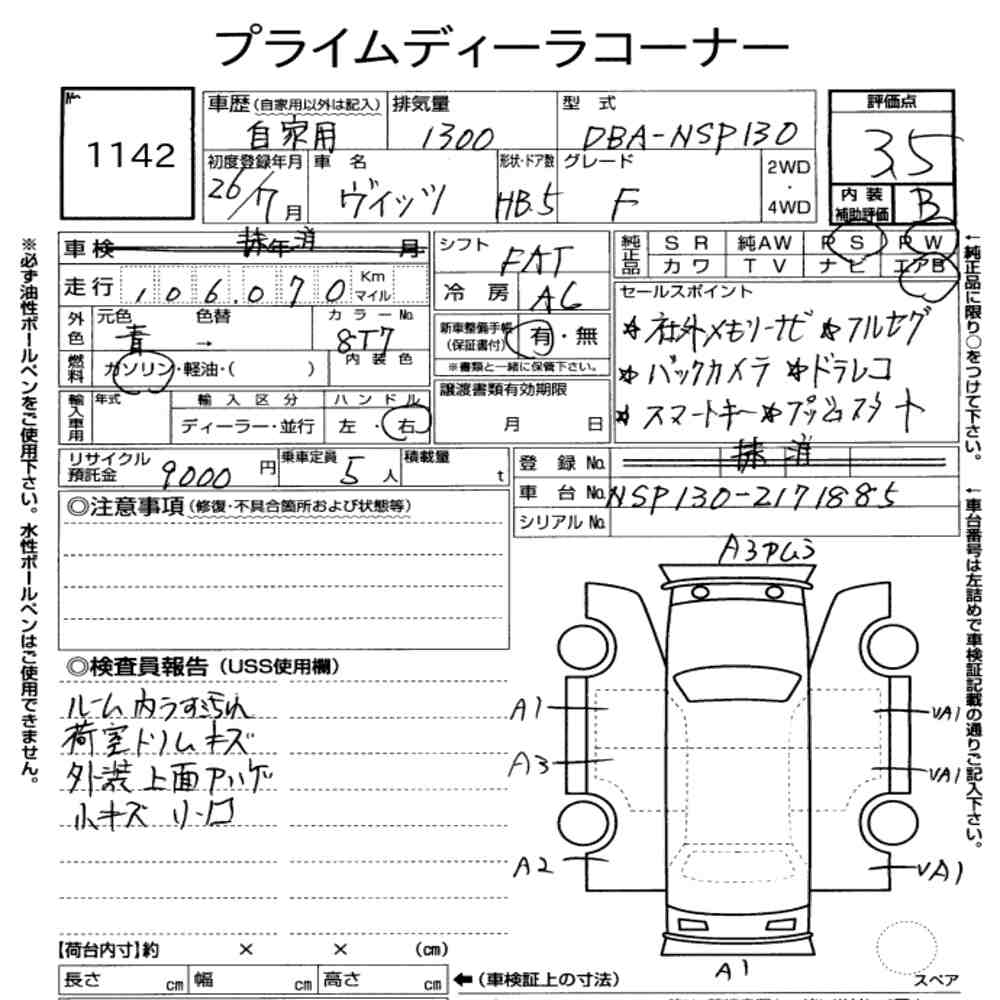 プライムディーラコーナー
No.
1142
車歴(自家用以外は記入)
自家用
排気量
1300
型 式
DBA-NSP130
評価点
3.5
初度登録年月
26/7月
車 名
ヴィッツ
形状・ドア数
HB.5
グレード
F
2WD
・
4WD
内装
補助評価
B
車検 年 月
抹消
走行 106.070 Km
マイル
シフト
FAT
冷房
AC
純正品
SR 純AW PS PW
カワ TV ナビ エアB
外色
元色 色替 カラーNo.
青 → 8T7
内装色
燃料
ガソリン・軽油・( )
新車整備手帳
(保証書付)
有・無
※書類と一緒に保管下さい。
セールスポイント
☆社外メモリーナビ ☆フルセグ
☆バックカメラ ☆ドラレコ
☆スマートキー☆プッシュスタート
輸入車用
年式
輸入区分 ハンドル
ディーラー・並行 左・右
譲渡書類有効期限
月 日
リサイクル
預託金
9000円
乗車定員 5人
積載量 t
登録No. 抹消
車台No. NSP130-2171885
シリアルNo.
◎注意事項(修復・不具合箇所および状態等)
◎検査員報告(USS使用欄)
ルーム内うす汚れ
荷室ドリムキズ
外装上面アハゲ
小キズ リーロ
A3アムラ
A1
A3
A2
A1
VA1
VA1
VA1
スペア
【荷台内寸】約 × × (cm)
長さ cm 幅 cm 高さ cm
←(車検証上の寸法)
※必ず油性ボールペンをご使用下さい。水性ボールペンはご使用できません。
←純正品に限り○をつけて下さい。
←車台番号は左詰めで車検証記載の通りご記入下さい。